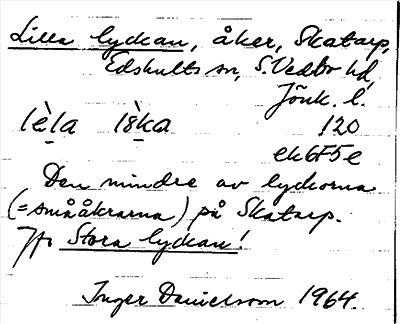 Lilla lyckan, åker, Skatarp,
Edshults sn, S. Vedbo hd,
Jönk. l.
120
ek6F5e
Den mindre av lyckorna
(= småäkrarna) på Skatarp.
Jfr Stora lyckan!
Inger Danielsson 1964.